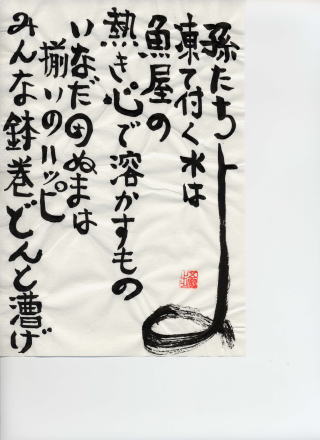 孫たちよ
凍て付く水は
魚屋の
熱き心で溶かすもの
いなだ
ぬまは
揃いのハッピ
みんな鉢巻どんと漕げ